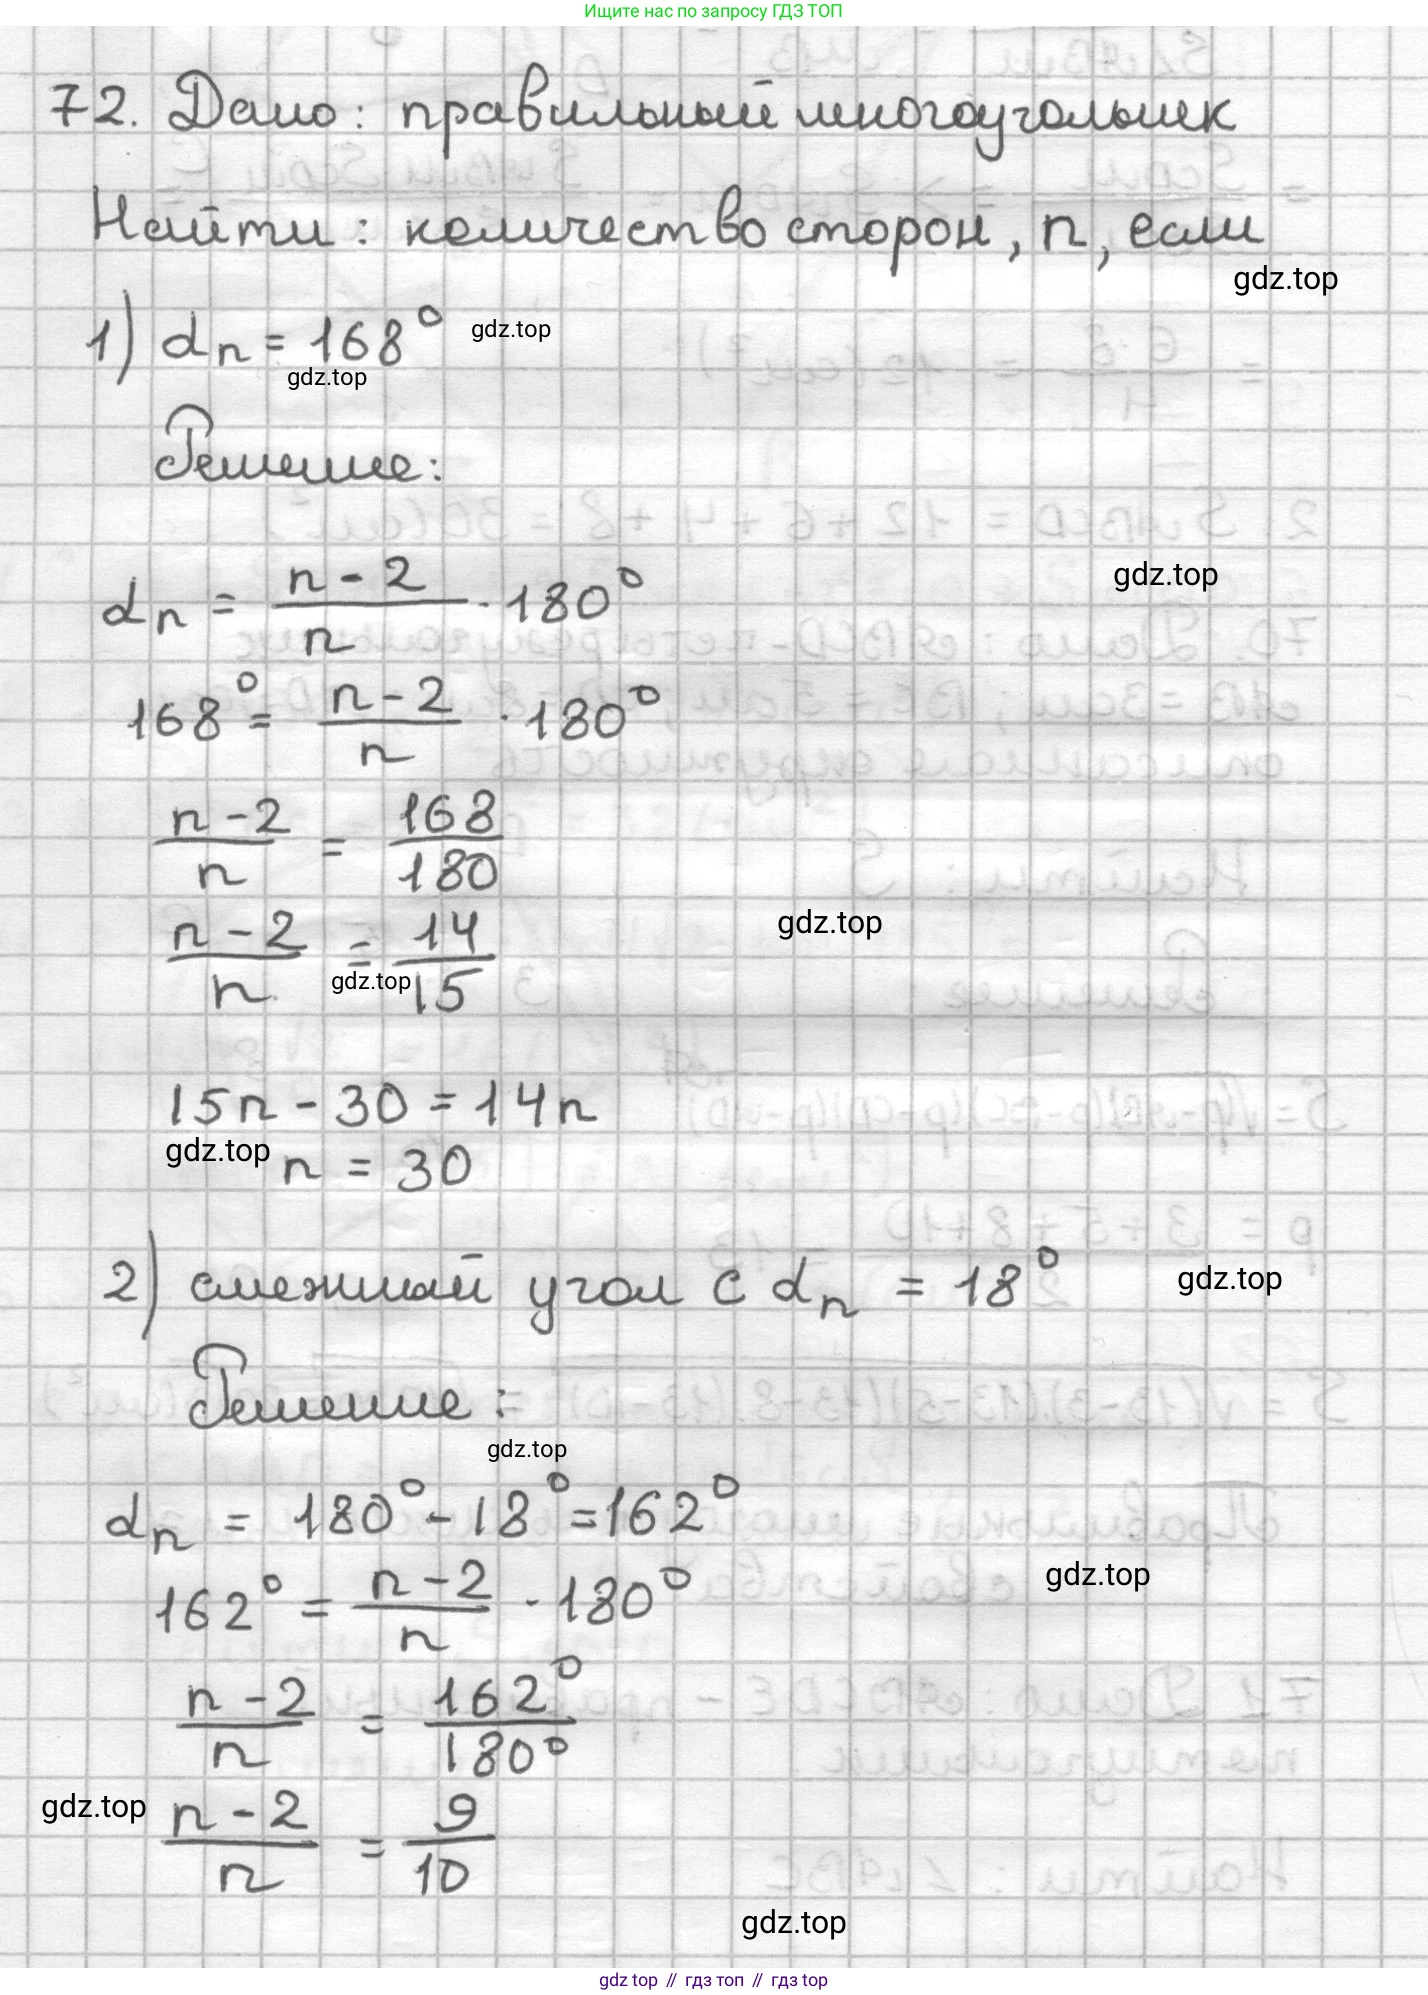 Ищите нас по запросу ГДЗ ТОП
72. Дано: правильный многоугольник
Найти: количество сторон, n, если
gdz.top
1) αn = 168° gdz.top
gdz.top
Решение:
αn = (n - 2)/n · 180° gdz.top
168° = (n - 2)/n · 180°
(n - 2)/n = 168/180
(n - 2)/n = 14/15 gdz.top
gdz.top
15n - 30 = 14n
gdz.top n = 30
2) смежный угол с αn = 18° gdz.top
Решение:
gdz.top
αn = 180° - 18° = 162°
162° = (n - 2)/n · 180° gdz.top
(n - 2)/n = 162°/180°
gdz.top (n - 2)/n = 9/10
gdz.top
gdz top // гдз топ // гдз top